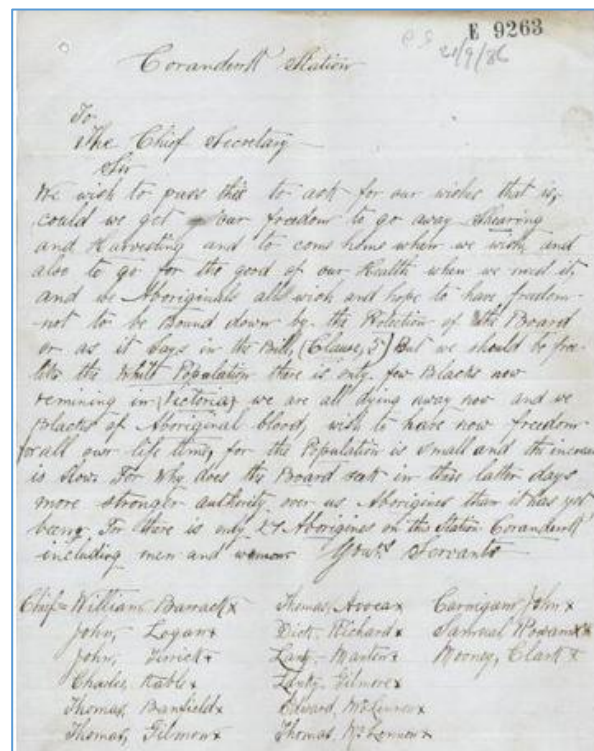 E 9263
21/9/86
Coranderrk Station
To
The Chief Secretary
Sir
We wish to pass this to ask for our wishes that is,
could we get our freedom to go away Shearing
and Harvesting and to come home when we wish, and
also to go for the good of our Health when we need it,
and we Aboriginals all wish and hope to have freedom
not to be bound down by the Protection of the Board
or as it says in the Bill, (Clause, 5) But we should be free
like the White Population there is only few Blacks now
remining in (Victoria), we are all dying away now and we
Blacks of Aboriginal blood, wish to have now freedom
for all our life time, for the Population is small and the increase
is slow. For Why does the Board seek in these latter days
more stronger authority over us Aborigines than it has yet
been? For there is only 27 Aborigines on this Station Coranderrk
including men and women Yours Servants
Chief = William Barrack x Thomas, x John x
John, Logan x Dick, Richard x Samual x
John, Terrick x Lanky Manton x Mooney, Clark x
Charles x Gilmore x
Thomas, Banfield x Edward, McLennon x
Thomas, Gilmore x Thomas, McLennon x